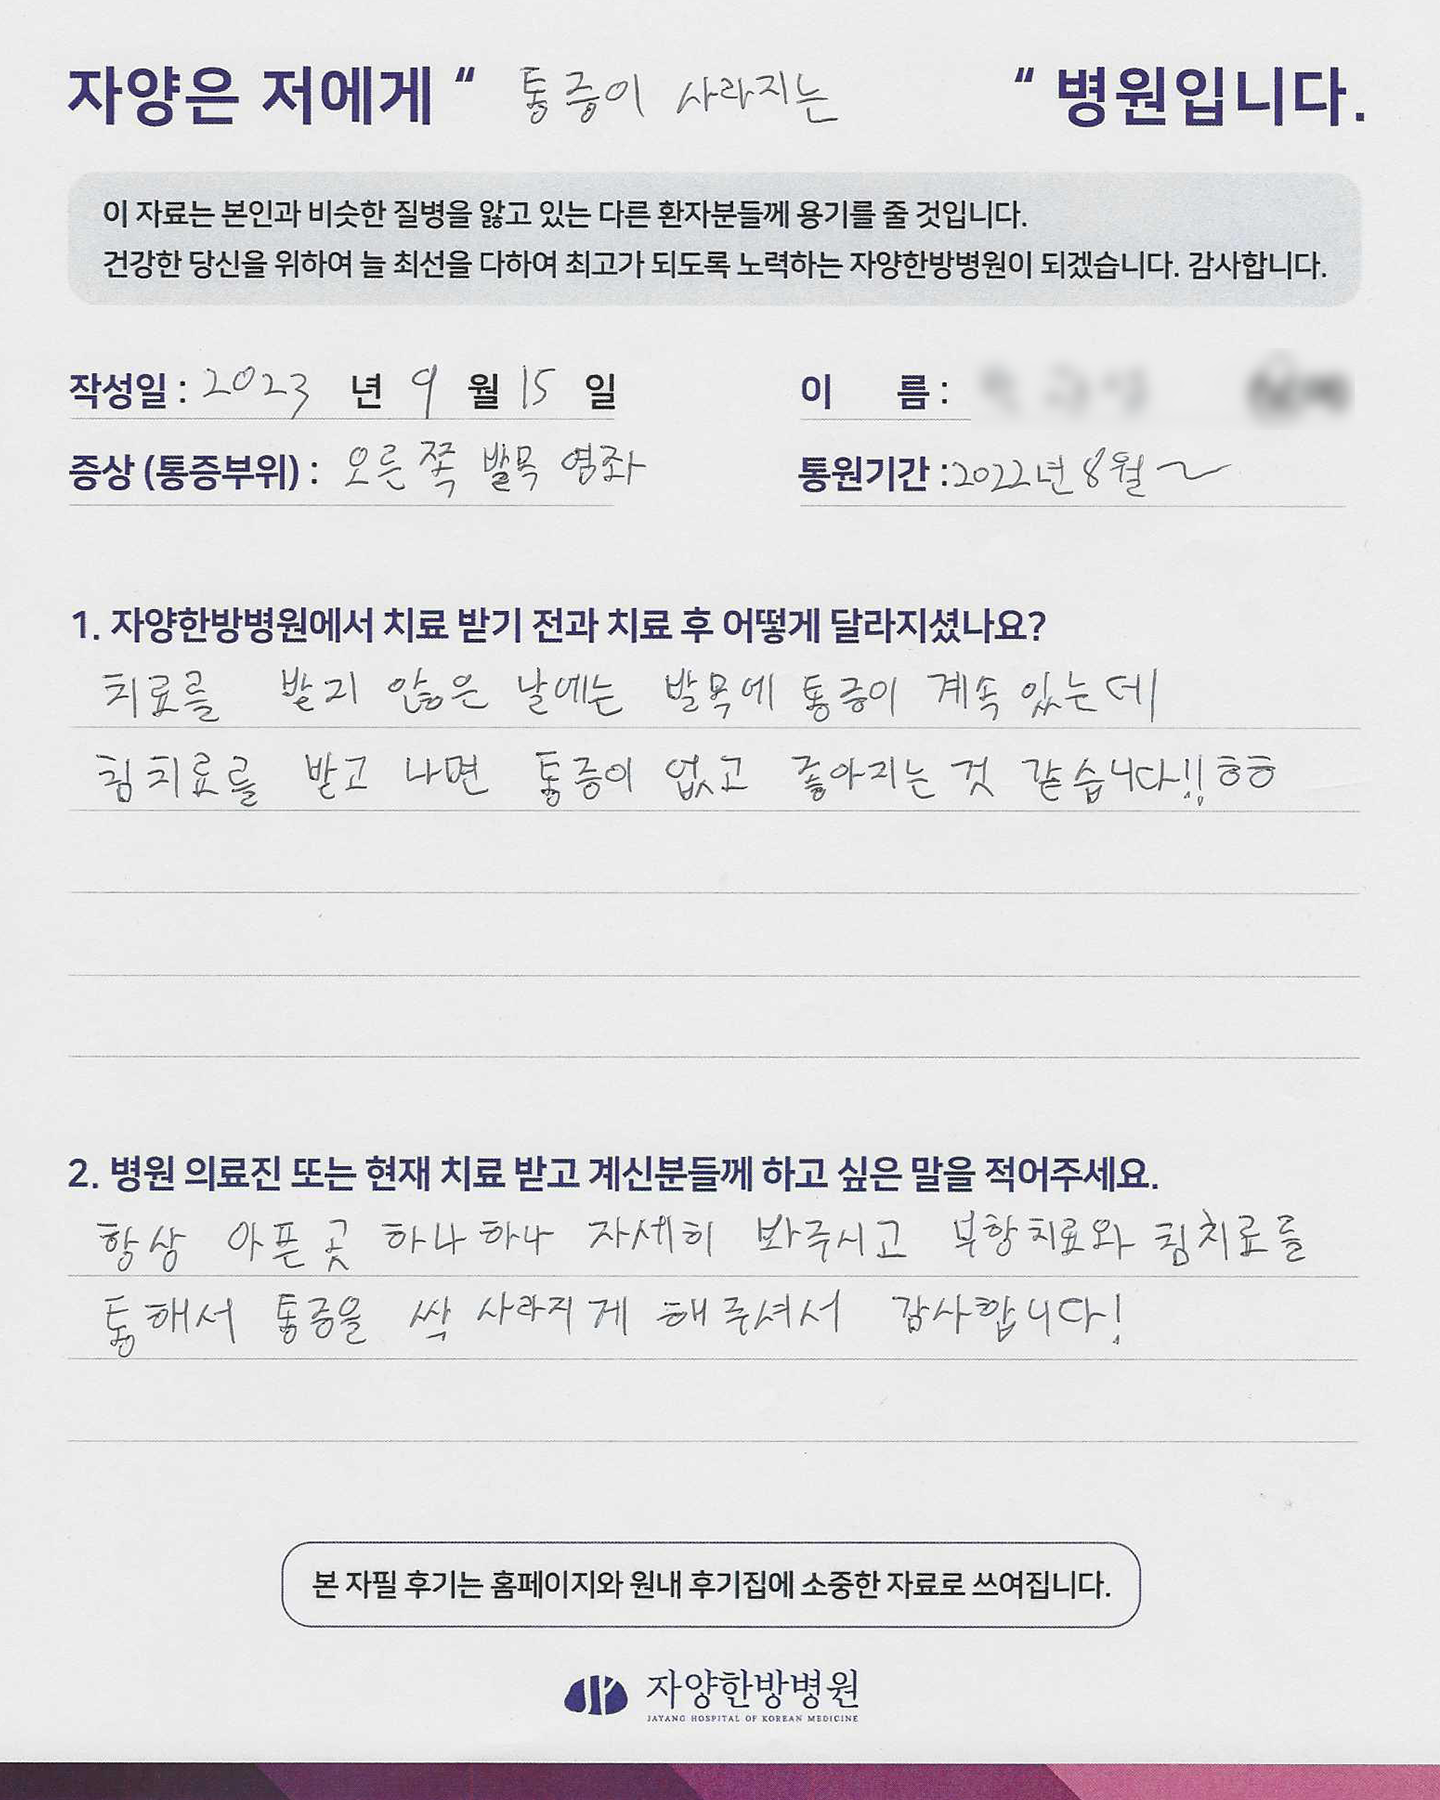 자양은 저에게 “ 통증이 사라지는 “ 병원입니다.
이 자료는 본인과 비슷한 질병을 앓고 있는 다른 환자분들께 용기를 줄 것입니다.
건강한 당신을 위하여 늘 최선을 다하여 최고가 되도록 노력하는 자양한방병원이 되겠습니다. 감사합니다.
작성일 : 2023 년 9 월 15 일 이 름 :
증상 (통증부위) : 오른쪽 발목 염좌 통원기간 : 2022년 8월 ~
1. 자양한방병원에서 치료 받기 전과 치료 후 어떻게 달라지셨나요?
치료를 받지 않은 날에는 발목에 통증이 계속 있는데
침치료를 받고 나면 통증이 없고 좋아지는 것 같습니다!! ㅎㅎ
2. 병원 의료진 또는 현재 치료 받고 계신분들께 하고 싶은 말을 적어주세요.
항상 아픈 곳 하나하나 자세히 봐주시고 부항치료와 침치료를
통해서 통증을 싹 사라지게 해주셔서 감사합니다!
본 자필 후기는 홈페이지와 원내 후기집에 소중한 자료로 쓰여집니다.
자양한방병원
JAYANG HOSPITAL OF KOREAN MEDICINE